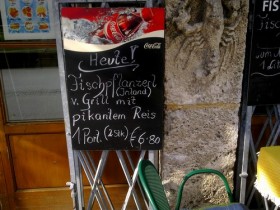 Coca-Cola
Heute!
Fischpflanzerl
(Inland)
v. Grill mit
pikantem Reis
1 Port. (2 Stk) € 6.80
FIS